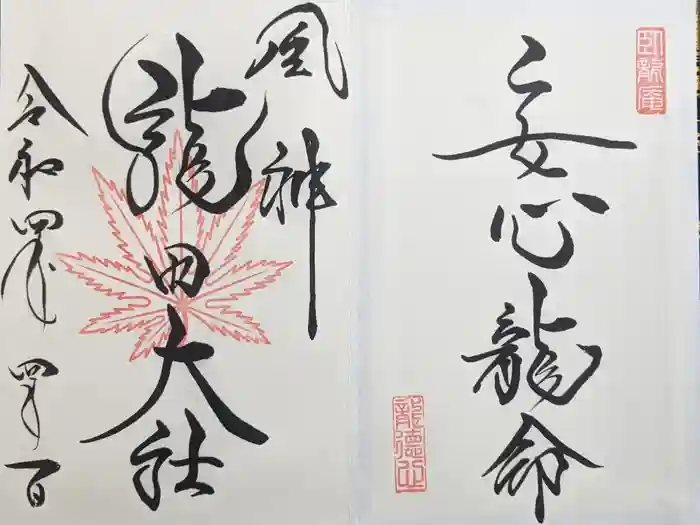 臥龍庵
安心龍命
龍徳山
風神
龍田大社
令和四年四月一日